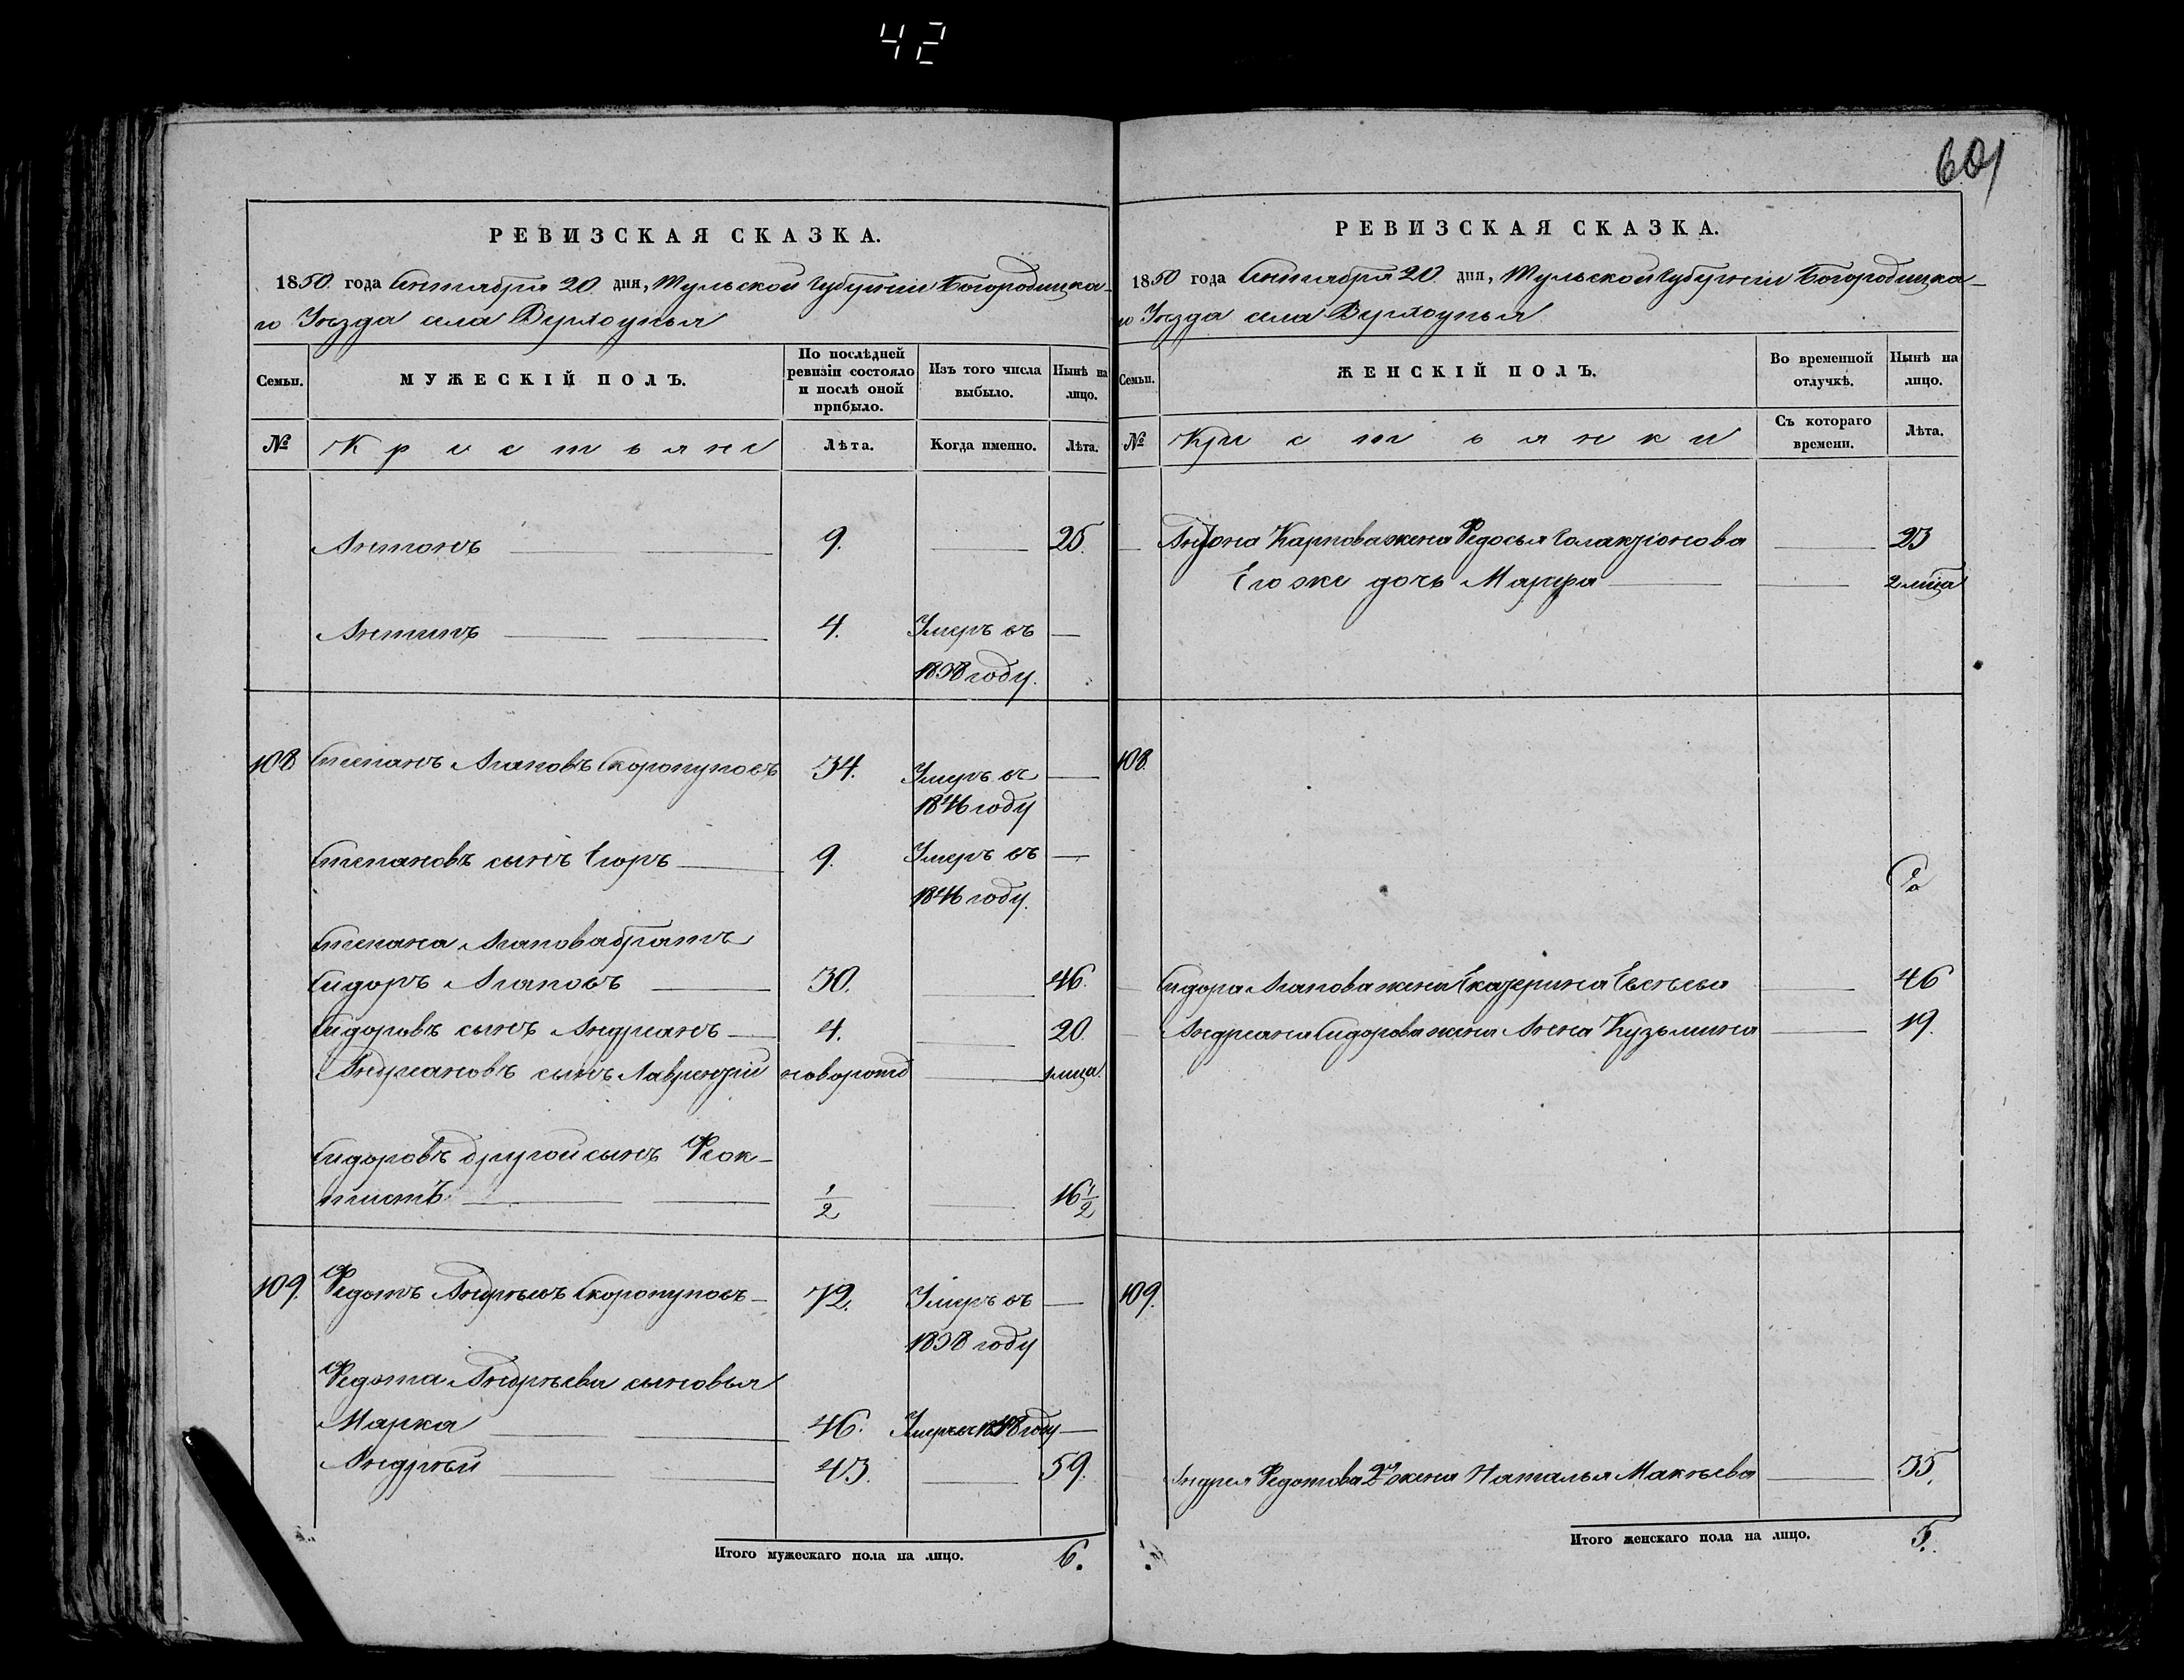 42
601
РЕВИЗСКАЯ СКАЗКА.
1850 года Сентября 20 дня, Тульской Губерніи Богородицка-
го Уезда села Верхоупья
Семьи.
МУЖЕСКІЙ ПОЛЪ.
По послѣдней ревизіи состояло и послѣ оной прибыло.
Изъ того числа выбыло.
Нынѣ на лицо.
№
Крестьяне
Лѣта.
Когда именно.
Лѣта.
Антонъ 9. 25.
Антипъ 4. Умеръ въ
1838 году.
108 Степанъ Агаповъ Скоропуповъ 34. Умеръ въ
1846 году
Степановъ сынъ Егоръ 9. Умеръ въ
1846 году.
Степана Агапова братъ
Сидоръ Агаповъ 30. 46.
Сидоровъ сынъ Андреанъ 4. 20.
Андреановъ сынъ Лаврентій новорожд 1 меца.
Сидоровъ другой сынъ Феок-
тистъ 1/2 16 1/2
109. Федотъ Андреевъ Скоропуповъ 72. Умеръ въ
1838 году
Федота Андреева сыновья
Марка 46. Умеръ въ 1848 году
Андрей 43. 59.
Итого мужескаго пола на лицо. 6.
РЕВИЗСКАЯ СКАЗКА.
1850 года Сентября 20 дня, Тульской Губерніи Богородицка-
го Уезда села Верхоупья
Семьи.
ЖЕНСКІЙ ПОЛЪ.
Во временной отлучкѣ.
Нынѣ на лицо.
№
Крестьянки
Съ котораго времени.
Лѣта.
Антона Карпова жена Федосья Галактіонова 23
Его же дочь Марфа 2 меца
108.
Сидора Агапова жена Екатерина 46
Андреана Сидорова жена Анна Кузьмина 19.
109.
Андрея Федотова 2я жена Наталья Макѣева 35.
Итого женскаго пола на лицо. 5.